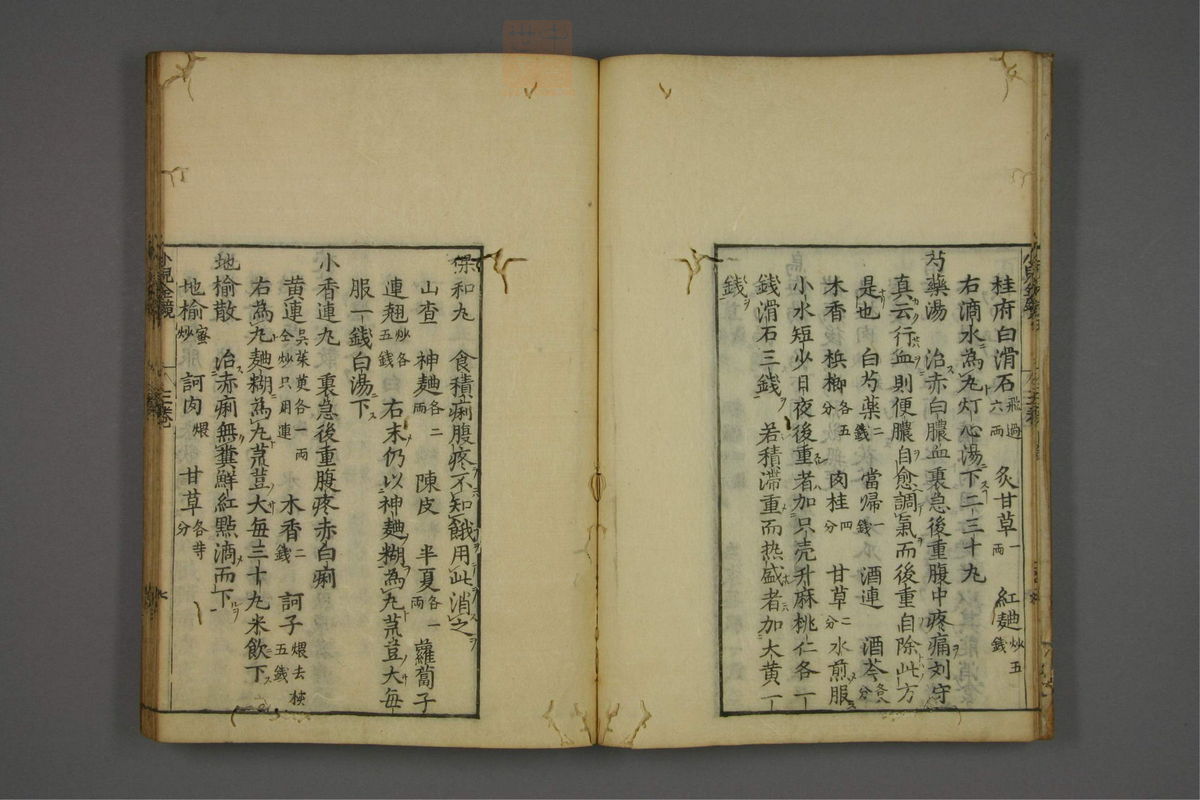 桂府白滑石飛過六兩 炙甘草一兩 紅麯炒五錢
右滴水為丸灯心湯下二三十丸
芍藥湯 治赤白膿血裏急後重腹中疼痛刘守
真云行血則便膿自愈調氣而後重自除此方
是也 白芍藥二錢 當歸一錢 酒連 酒芩各八分
木香 梹榔各五分 肉桂四分 甘草二分水煎服
小水短少日夜後重者加只壳升麻桃仁各一
錢滑石三錢 若積滯重而热盛者加大黄一
錢
保和丸 食積痢腹疼不知餓用此消之
山查 神麯各二兩 陳皮 半夏各一兩 蘿蔔子
連翹炒各五錢 右末仍以神麯糊為丸荒豆大每
服一錢白湯下
小香連丸 裏急後重腹疼赤白痢
黄連吳茱萸各一兩仝炒只用連 木香二錢 訶子煨去核五錢
右為丸麯糊為丸荒豆大每三十丸米飲下
地榆散 治赤痢無糞鮮紅點滴而下
地榆蜜炒 訶肉煨 甘草各等分